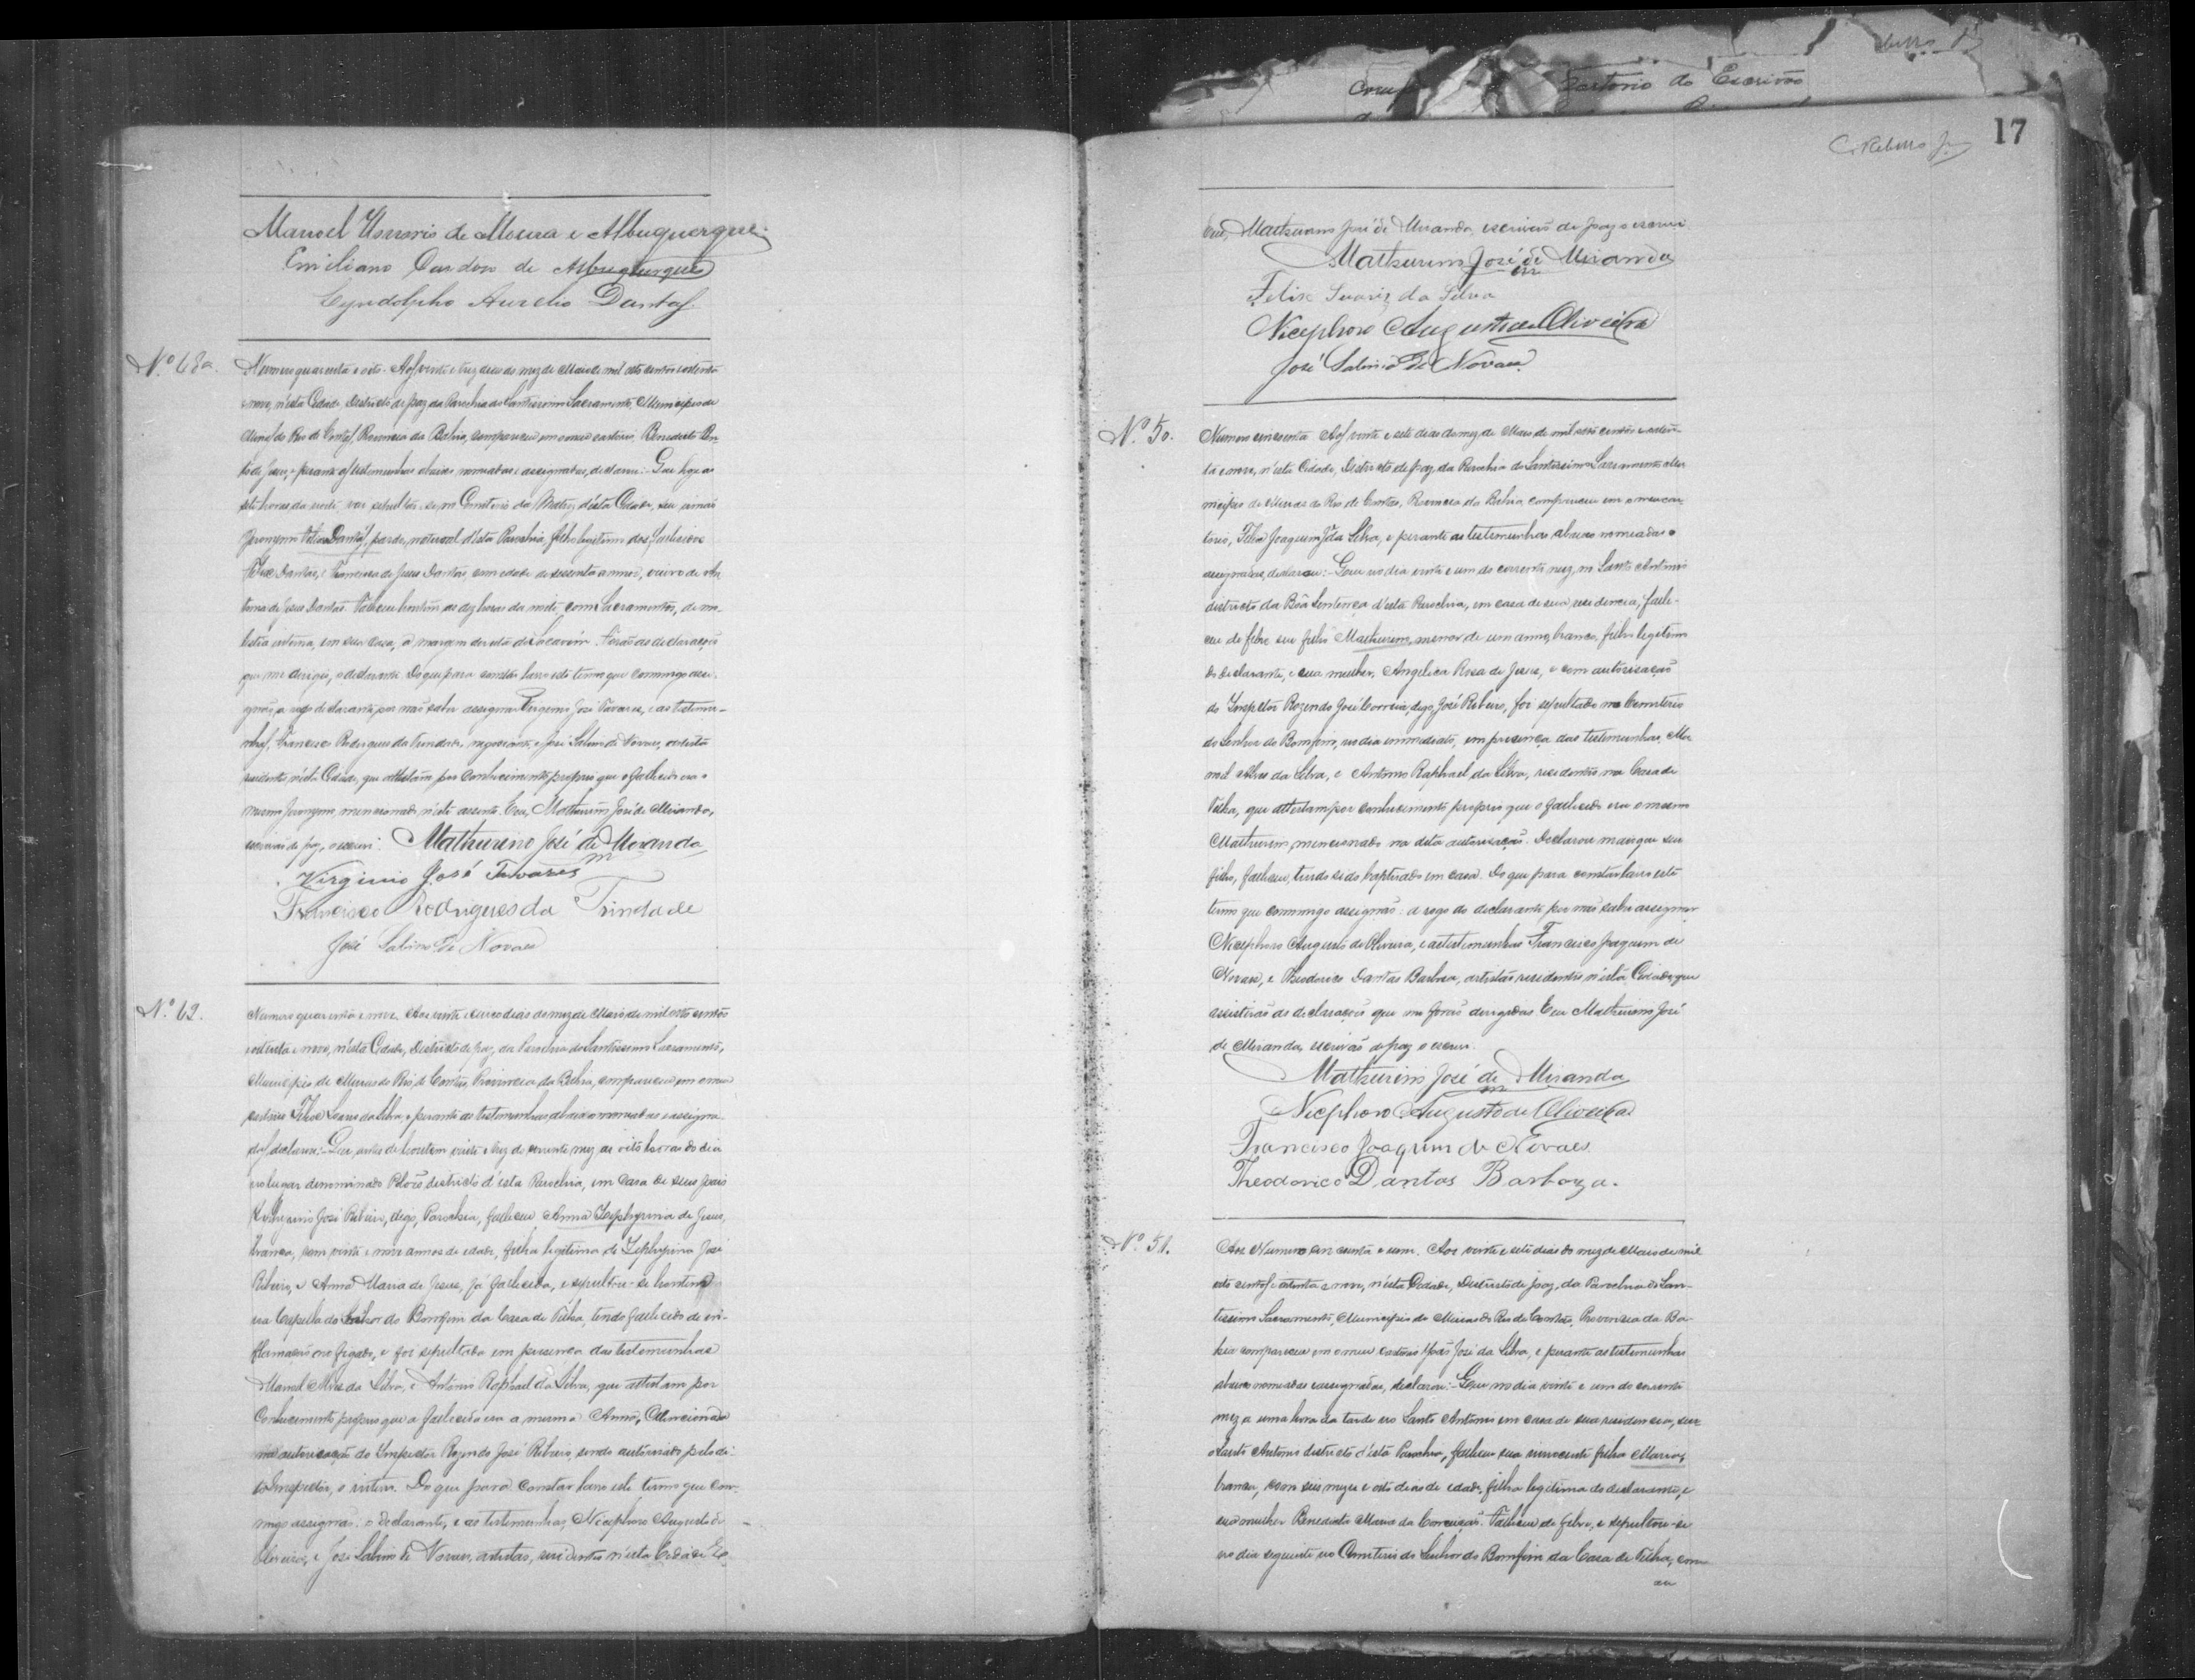 Cartorio do Escrivão
17
C. Rebello Jr
Manoel Honorio de Moura e Albuquerque
Emiliano Cardoso de Albuquerque
Lyndolpho Aurelio Dantas
Nº 48
Numero quarenta e oito. Aos vinte e trez dias do mez de Maio de mil oito centos e oitenta
e nove, n'esta Cidade, Districto de paz da Parochia do Santissimo Sacramento, Municipio de
Minas do Rio de Contas, Provincia da Bahia, compareceu em o meu cartorio, Benedicto
de Jesus, e perante as testemunhas abaixo nomeadas e assignadas, declarou: Que hoje as
horas da vai sepultar-se, no Cemiterio da Matriz d'esta Cidade, seu irmão
Jeronymo Dantas, pardo, natural d'esta Parochia, filho legitimo dos fallecidos
Dantas, e Francisca de Jesus Dantas com edade de sessenta annos, viuvo de
de Jesus Dantas. Falleceu hontem, as dez horas da noite, com Sacramentos, de mo-
lestia interna, em sua casa, á margem do Forão as declarações
que me dirigio, o declarante. Do que para constar lavro este termo que commigo assi-
gnão, a rogo do declarante, por não saber assignar Virginio José Tavares, e as testemu-
nhas, Francisco Rodrigues da Trindade, negociante, e José Sabino de Novaes, artista
residentes n'esta Cidade, que attestam por conhecimento proprio que o fallecido era o
mesmo Jeronymo, mencionado n'este assento. Eu, Mathurino José de Miranda,
escrivão de paz, o escrevi. Mathurino José de Miranda
Virginio José Tavares
Francisco Rodrigues da Trindade
José Sabino de Novaes
Nº 49.
Numero quarenta e nove. Aos vinte e cinco dias do mez de Maio de mil oito centos
e oitenta e nove, n'esta Cidade, Districto de paz, da Parochia do Santissimo Sacramento,
Municipio de Minas do Rio de Contas, Provincia da Bahia, compareceu em o meu
cartorio Felix Soares da Silva, e perante as testemunhas abaixo nomeadas e assigna-
das, declarou: Que, antes de hontem vinte e trez do corrente mez, as oito horas do dia
no lugar denominado districto d'esta Parochia, em casa de seus pais
José Ribeiro, digo, Parochia, falleceu Anna Zephyrina de Jesus,
branca, com vinte e nove annos de edade, filha legitima de Zephyrino José
Ribeiro, e Anna Maria de Jesus, já fallecida, e sepultou-se hontem
na Capella do Senhor do Bomfim da Casa de Telha, tendo fallecido de in-
flamação no figado, e foi sepultada em presença das testemunhas
Manoel Alves da Silva, e Antonio Raphael da Silva, que attestam por
Conhecimento proprio que a fallecida era a mesma Anna, Mencionada
na autorisação do Inspector Rozendo José Ribeiro, sendo autorisado pelo di-
to Inspector, o enterro. Do que para constar lavro este termo que com-
migo assignão: o declarante, e as testemunhas, Nicephoro Augusto de
Oliveira, e José Sabino de Novaes, artistas, residentes n'esta Cidade. Eu
Eu, Mathurino José de Miranda, escrivão de paz o escrevi
Mathurino José de Miranda
Felix Suares da Silva
Nicephoro Augusto de Oliveira
José Sabino de Novaes
Nº 50.
Numero cincoenta. Aos vinte e sete dias do mez de Maio de mil oito centos e oiten-
ta e nove, n'esta Cidade, Districto de paz, da Parochia do Santissimo Sacramento Mu-
nicipio de Minas do Rio de Contas, Provincia da Bahia, compareceu em o meu car-
torio, Felix Joaquim da Silva, e perante as testemunhas abaixo nomeadas e
assignadas, declarou: Que no dia vinte e um do corrente mez, em Santo Antonio
districto da Bôa Sentença d'esta Parochia, em casa de sua residencia, falle-
ceu de febre seu filho Mathurino, menor de um anno, branco, filho legitimo
do declarante, e sua mulher, Angelica Rosa de Jesus, e com autorisação
do Inspector Rozendo José Correia, digo, José Ribeiro, foi sepultado no Cemiterio
do Senhor do Bomfim, no dia immediato, em presença das testemunhas, Ma-
noel Alves da Silva, e Antonio Raphael da Silva, residentes na Casa de
Telha, que attestam por conhecimento proprio que o fallecido era o mesmo
Mathurino, mencionado na dita autorisação. Declarou mais que seu
filho, falleceu, tendo sido baptisado em casa. Do que para constar lavro este
termo que commigo assignão: a rogo do declarante por não saber assignar
Nicephoro Augusto de Oliveira, e as testemunhas Francisco Joaquim de
Novaes, e Theodorico Dantas Barboza, artistas residentes n'esta Cidade, que
assistirão as declarações que me forão dirigidas. Eu Mathurino José
de Miranda, escrivão de paz o escrevi.
Mathurino José de Miranda
Nicephoro Augusto de Oliveira
Francisco Joaquim de Novaes
Theodorico Dantas Barboza.
Nº 51.
Aos Numero cincoenta e um. Aos vinte e sete dias do mez de Maio de mil
oito centos e oitenta e nove, n'esta Cidade, Districto de paz, da Parochia do San-
tissimo Sacramento, Municipio de Minas do Rio de Contas, Provincia da Ba-
hia compareceu em o meu cartorio João José da Silva, e perante as testemunhas
abaixo nomeadas e assignadas, declarou: Que no dia vinte e um do corrente
mez a uma hora da tarde no Santo Antonio em casa de sua residencia,
Santo Antonio districto d'esta Parochia, falleceu sua innocente filha Maria,
branca, com seis mezes e oito dias de edade, filha legitima do declarante, e
sua mulher Benedicta Maria da Conceição. Falleceu de febre, e sepultou-se
no dia seguinte no Cemiterio do Senhor do Bomfim da Casa de Telha, com